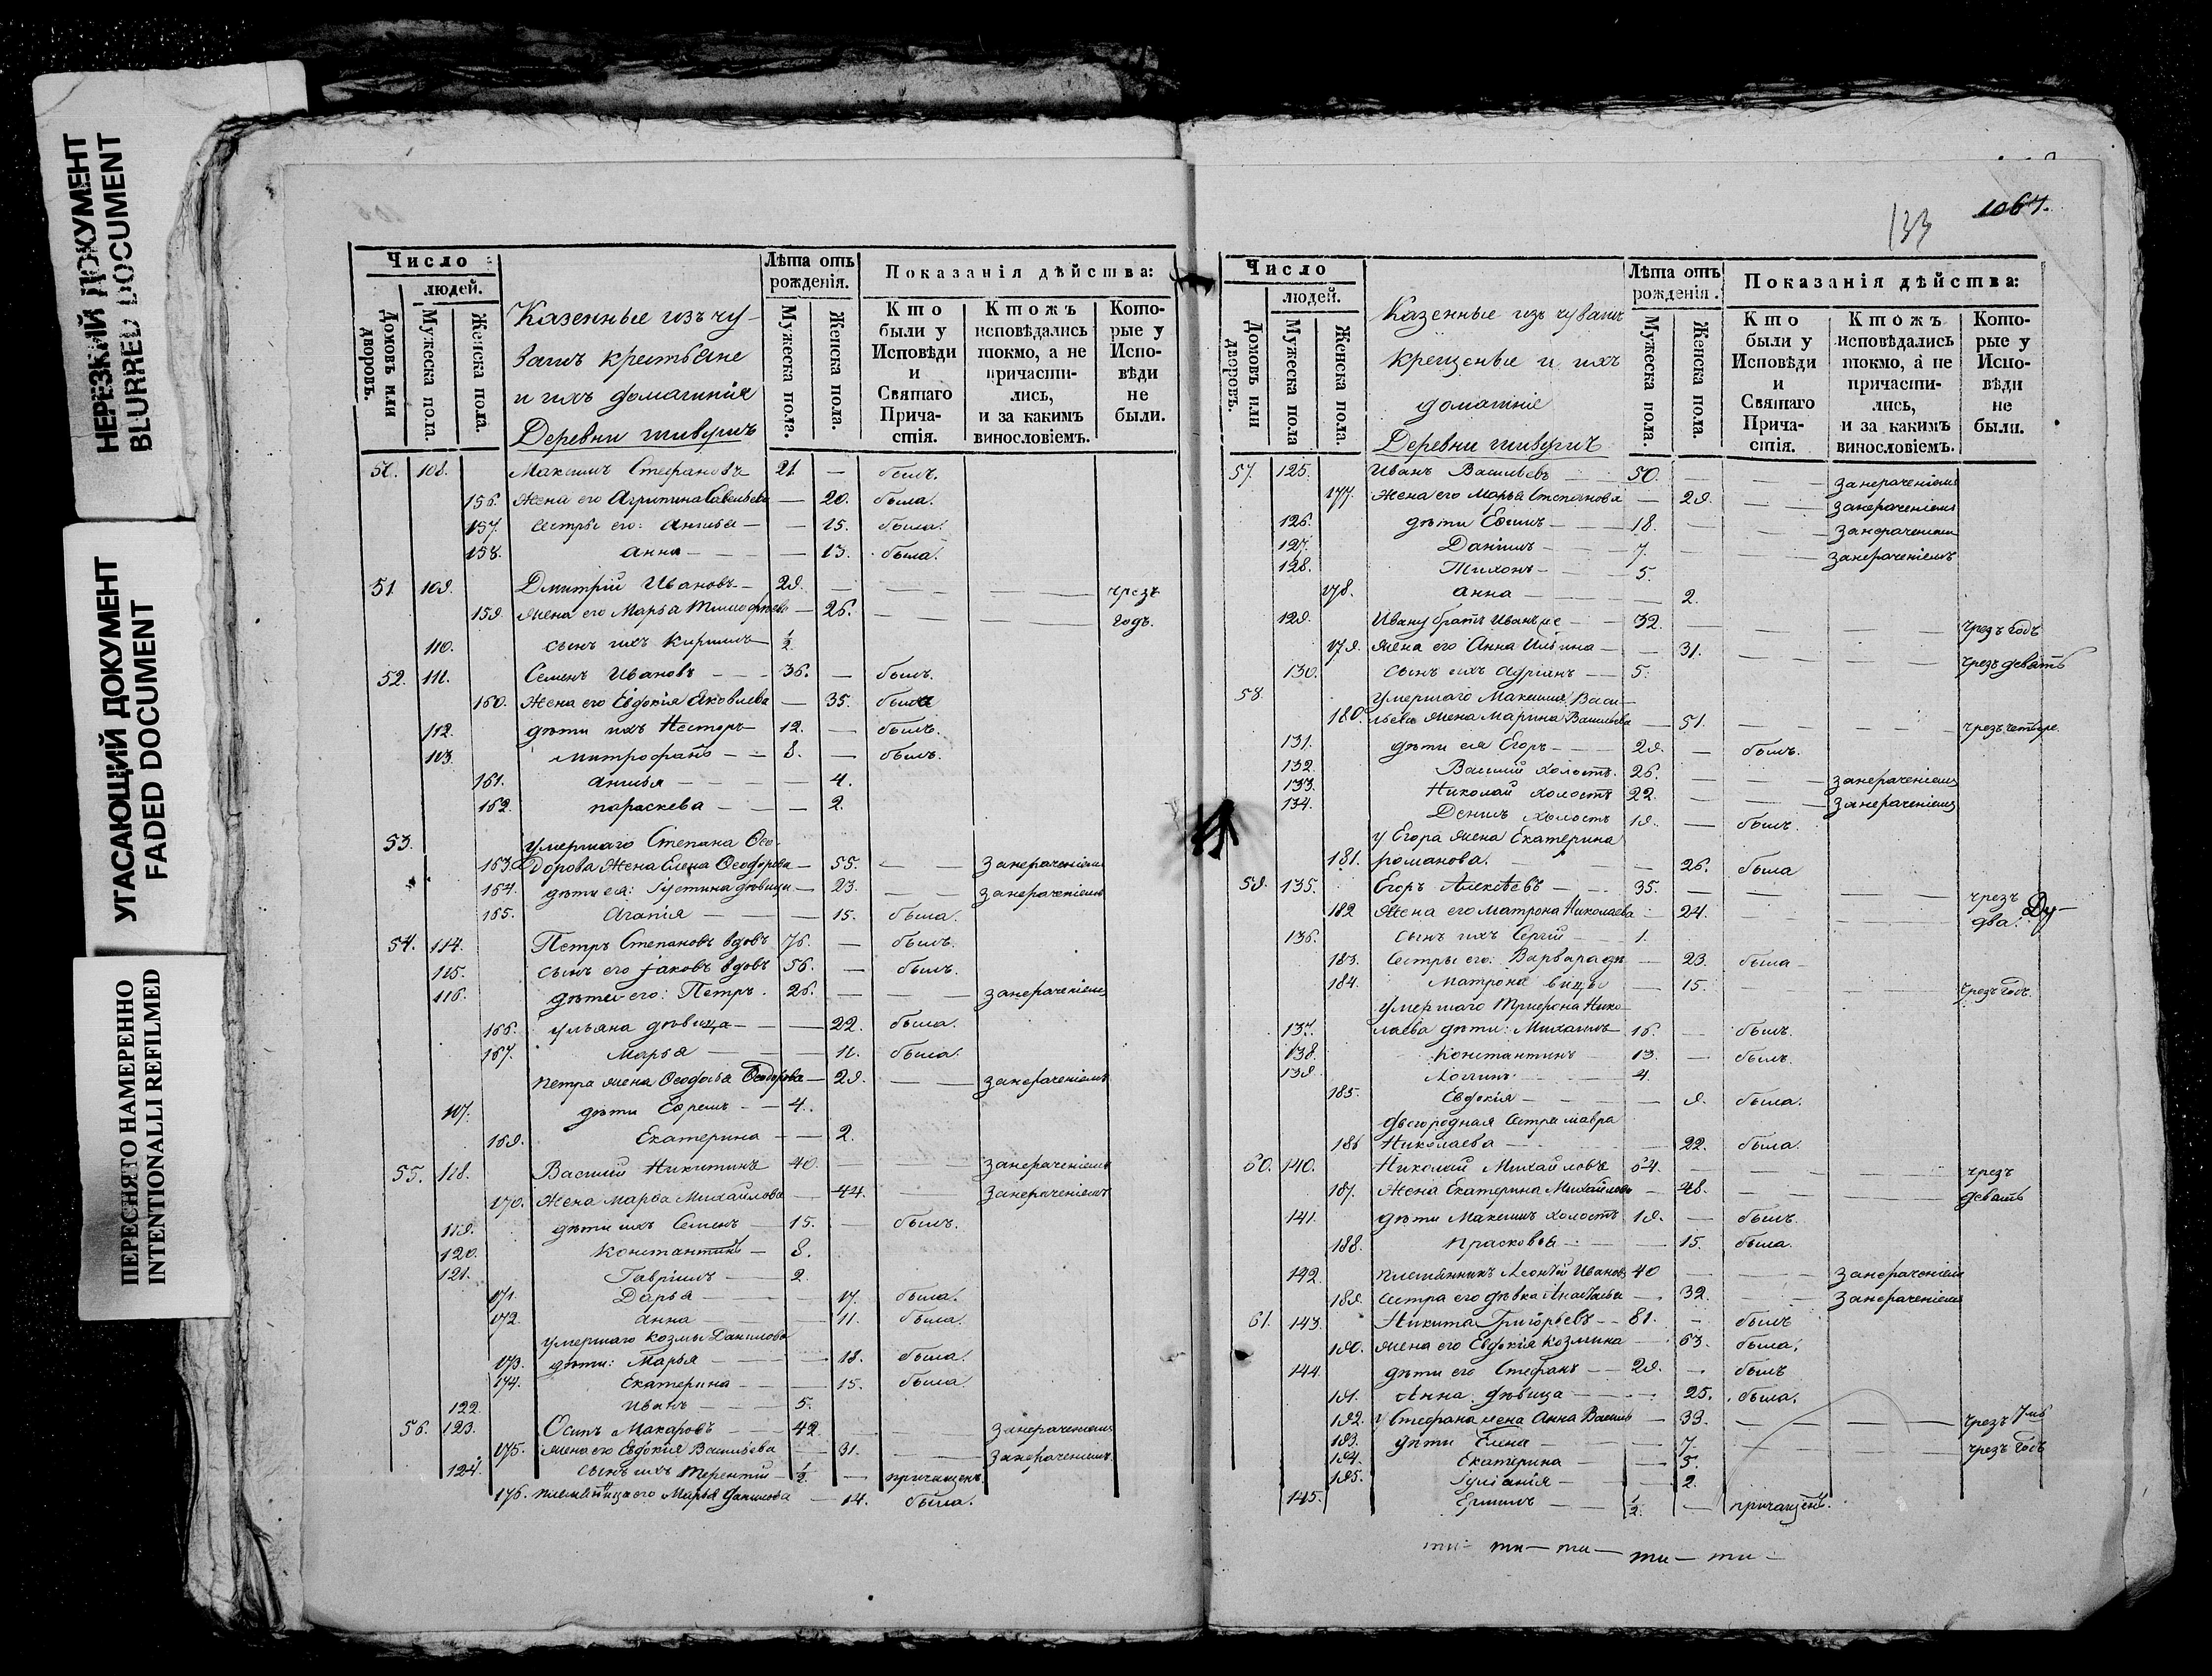 НЕРЕЗКИЙ ДОКУМЕНТ
BLURRED DOCUMENT
УГАСАЮЩИЙ ДОКУМЕНТ
FADED DOCUMENT
ПЕРЕСНЯТО НАМЕРЕННО
INTENTIONALLI REFILMED
Число
людей.
Домовъ или дворовъ.
Мужеска пола.
Женска пола.
Казенные изъ чу-
вашъ крестьяне
и ихъ домашнія
Деревни
Лѣта отъ рожденія.
Мужеска пола.
Женска пола.
Показанія дѣйства:
Кто были у Исповѣди и Святаго Прича-стія.
Ктожъ исповѣдались токмо, а не причасти-лись, и за какимъ винословіемъ.
Кото-рые у Испо-вѣди не были.
108. Максимъ Стефановъ 21. — былъ.
156. Жена его Агрипина Савельева — 20. была.
157. сестры его: Анисья — 15. была.
158. Анна — 13. была.
51. 109. Дмитрій Ивановъ 29. чрезъ
159. Жена его Марья Тимофѣева — 26. годъ.
110. сынъ ихъ Кирилъ ½
52. 111. Семенъ Ивановъ 36. — былъ.
160. Жена его Евдокія Яковлева — 35. была
112. дѣти ихъ Несторъ 12. — былъ.
113. Митрофанъ 8. — былъ.
161. Анисья 4.
162. Параскева — 2.
53. умершаго Степана Ѳео-
163. дорова Жена Елена Ѳеодорова — 55. занераченіемъ
164. дѣти ея: Іустина дѣвица — 23. занераченіемъ
165. Агапія — 15. была.
54. 114. Петръ Степановъ вдовъ 76. — былъ.
115. сынъ его Іаковъ вдовъ 56. — былъ.
116. дѣти его: Петръ. 26. занераченіемъ
166. Ульяна дѣвица — 22. была.
167. Марья — 11. была.
Петра жена Ѳеодосья Ѳеодорова — 29. занераченіемъ
117. дѣти Ефремъ — 4.
169. Екатерина — 2.
55. 118. Василій Никитинъ 40. занераченіемъ
170. Жена Марѳа Михайлова — 44. занераченіемъ
119. дѣти ихъ Семенъ 15. — былъ.
120. Константинъ — 8.
121. Гавріилъ — 2.
171. Дарья — 17. была.
172. Анна — 11. была.
умершаго Козмы Данилова
173. дѣти: Марья — 18. была.
174. Екатерина — 15. была
122. Иванъ — 5.
56. 123. Осипъ Макаровъ 42 занераченіемъ
175. жена его Евдокія Васильева — 31. занераченіемъ
124. сынъ ихъ Терентій — ½ — причащенъ.
176. племянница его Марья Данилова — 14. была.
133
1067.
Число
людей.
Домовъ или дворовъ.
Мужеска пола
Женска пола.
Казенные изъ чувашъ
крещеные и ихъ
домашніе
Деревни
Лѣта отъ рожденія.
Мужеска пола.
Женска пола.
Показанія дѣйства:
Кто были у Исповѣди и Святаго Прича-стія.
Ктожъ исповѣдались токмо, а не причасти-лись, и за какимъ винословіемъ.
Кото-рые у Испо-вѣди не были.
57. 125. Иванъ Васильевъ 50. занераченіемъ
177. Жена его Марья Степанова — 29. занераченіемъ
126. дѣти Ефимъ 18. занераченіемъ
127. Даніилъ 7. занераченіемъ
128. Тихонъ 5.
178. Анна 2.
129. Ивану братъ Иванъ же 32. чрезъ годъ
179. Жена его Анна Ильина — 31.
130. сынъ ихъ Адріанъ — 5. чрезъ девять
58. умершаго Максима Васи-
180. льева жена Марина Васильева — 51. чрезъ четыре.
131. дѣти ея Егоръ 29. — былъ.
132. Василій холостъ. 26. занераченіемъ
133. Николай холостъ 22. занераченіемъ
134. Денисъ холостъ 19. — былъ.
у Егора жена Екатерина
181. Романова. — 26. была
59. 135. Егоръ Алексѣевъ 35. чрезъ
182 Жена его Матрона Николаева 24. два.
136. сынъ ихъ Сергій 1.
183. Сестры его: Варвара дѣ — 23. была
184. Матрона вицы — 15. чрезъ годъ.
умершаго Трифона Нико-
137. лаева дѣти: Михаилъ 16. — былъ.
138. Константинъ 13. — былъ.
139. Логгинъ 4.
185. Евдокія — 9. была.
двоюродная сестра Мавра
186 Николаева — 22. была.
60. 140. Николай Михайловъ 64. чрезъ
187. Жена Екатерина Михайлова 48. девать
141. дѣти Максимъ холостъ 19. — былъ.
188. Прасковья — 15. была.
142. племянникъ Леонтій Ивановъ 40 занераченіемъ
189. сестра его дѣвка — 32. занераченіемъ
61. 143. Никита Григорьевъ 81. — былъ
190. жена его Евдокія Козмина — 63. была.
144. дѣти его Стефанъ 29. — былъ
191. Анна дѣвица — 25. была.
192. у Стефана жена Анна Василь — 33. чрезъ 7мъ
193. дѣти Елена — 7. чрезъ годъ
194. Екатерина — 5.
195. Іуліанія — 2.
145. Ермилъ ½ — причащенъ.
ти — ти — ти — ти — ти